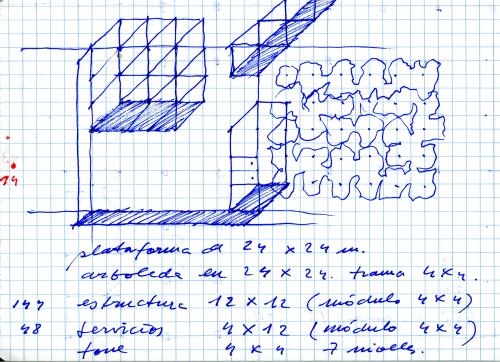 14
plataforma de 24 x 24 m.
arboleda en 24 x 24. trama 4x4.
144 estructura 12 x 12 (módulo 4x4)
48 servicios 4 x 12 (módulo 4x4)
torre 4 x 4 7 niveles.